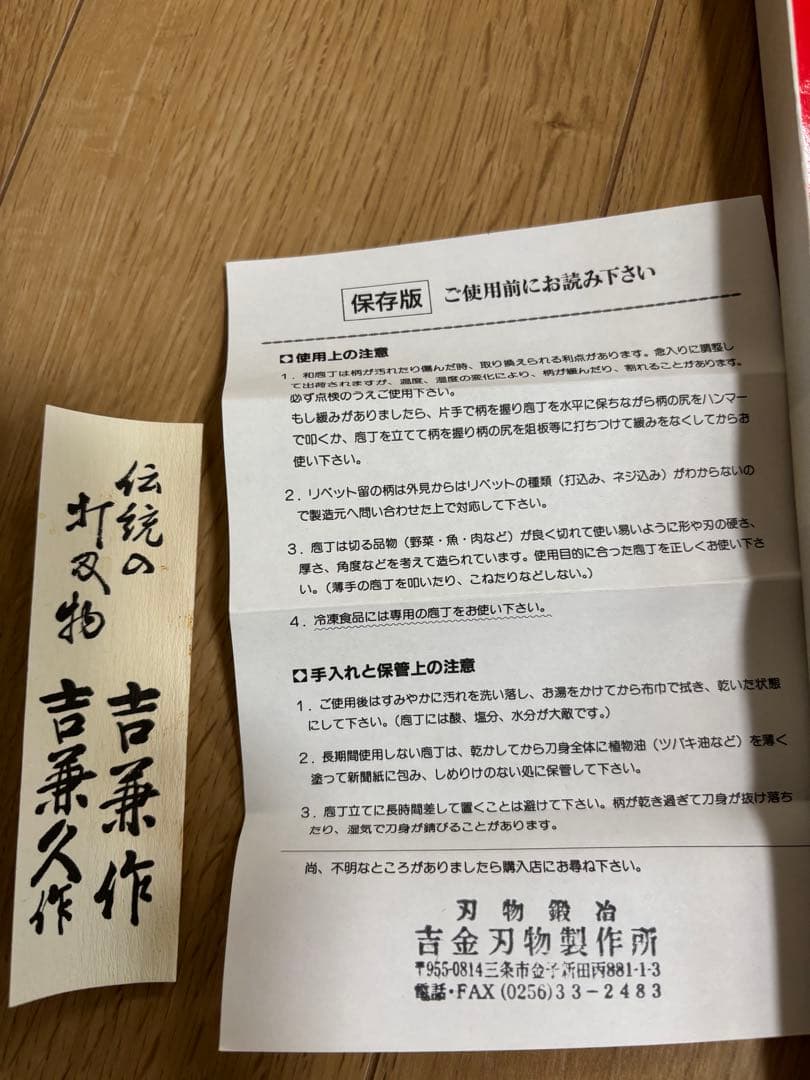 伝統の
打刃物
吉兼作
吉兼久作
保存版 ご使用前にお読み下さい
使用上の注意
1．和庖丁は柄が汚れたり傷んだ時、取り換えられる利点があります。念入りに調整し
て出荷されますが、温度、湿度の変化により、柄が緩んだり、割れることがあります。
必ず点検のうえご使用下さい。
もし緩みがありましたら、片手で柄を握り庖丁を水平に保ちながら柄の尻をハンマー
で叩くか、庖丁を立てて柄を握り柄の尻を俎板等に打ちつけて緩みをなくしてからお
使い下さい。
2．リベット留の柄は外見からはリベットの種類（打込み、ネジ込み）がわからないの
で製造元へ問い合わせた上で対応して下さい。
3．庖丁は切る品物（野菜・魚・肉など）が良く切れて使い易いように形や刃の硬さ、
厚さ、角度などを考えて造られています。使用目的に合った庖丁を正しくお使い下さ
い。（薄手の庖丁を叩いたり、こねたりなどしない。）
4．冷凍食品には専用の庖丁をお使い下さい。
手入れと保管上の注意
1．ご使用後はすみやかに汚れを洗い落し、お湯をかけてから布巾で拭き、乾いた状態
にして下さい。（庖丁には酸、塩分、水分が大敵です。）
2．長期間使用しない庖丁は、乾かしてから刀身全体に植物油（ツバキ油など）を薄く
塗って新聞紙に包み、しめりけのない処に保管して下さい。
3．庖丁立てに長時間差して置くことは避けて下さい。柄が乾き過ぎて刀身が抜け落ち
たり、湿気で刀身が錆びることがあります。
尚、不明なところがありましたら購入店にお尋ね下さい。
刃物鍛冶
吉金刃物製作所
〒955-0814三条市金子新田丙881-1-3
電話・FAX(0256)33-2483